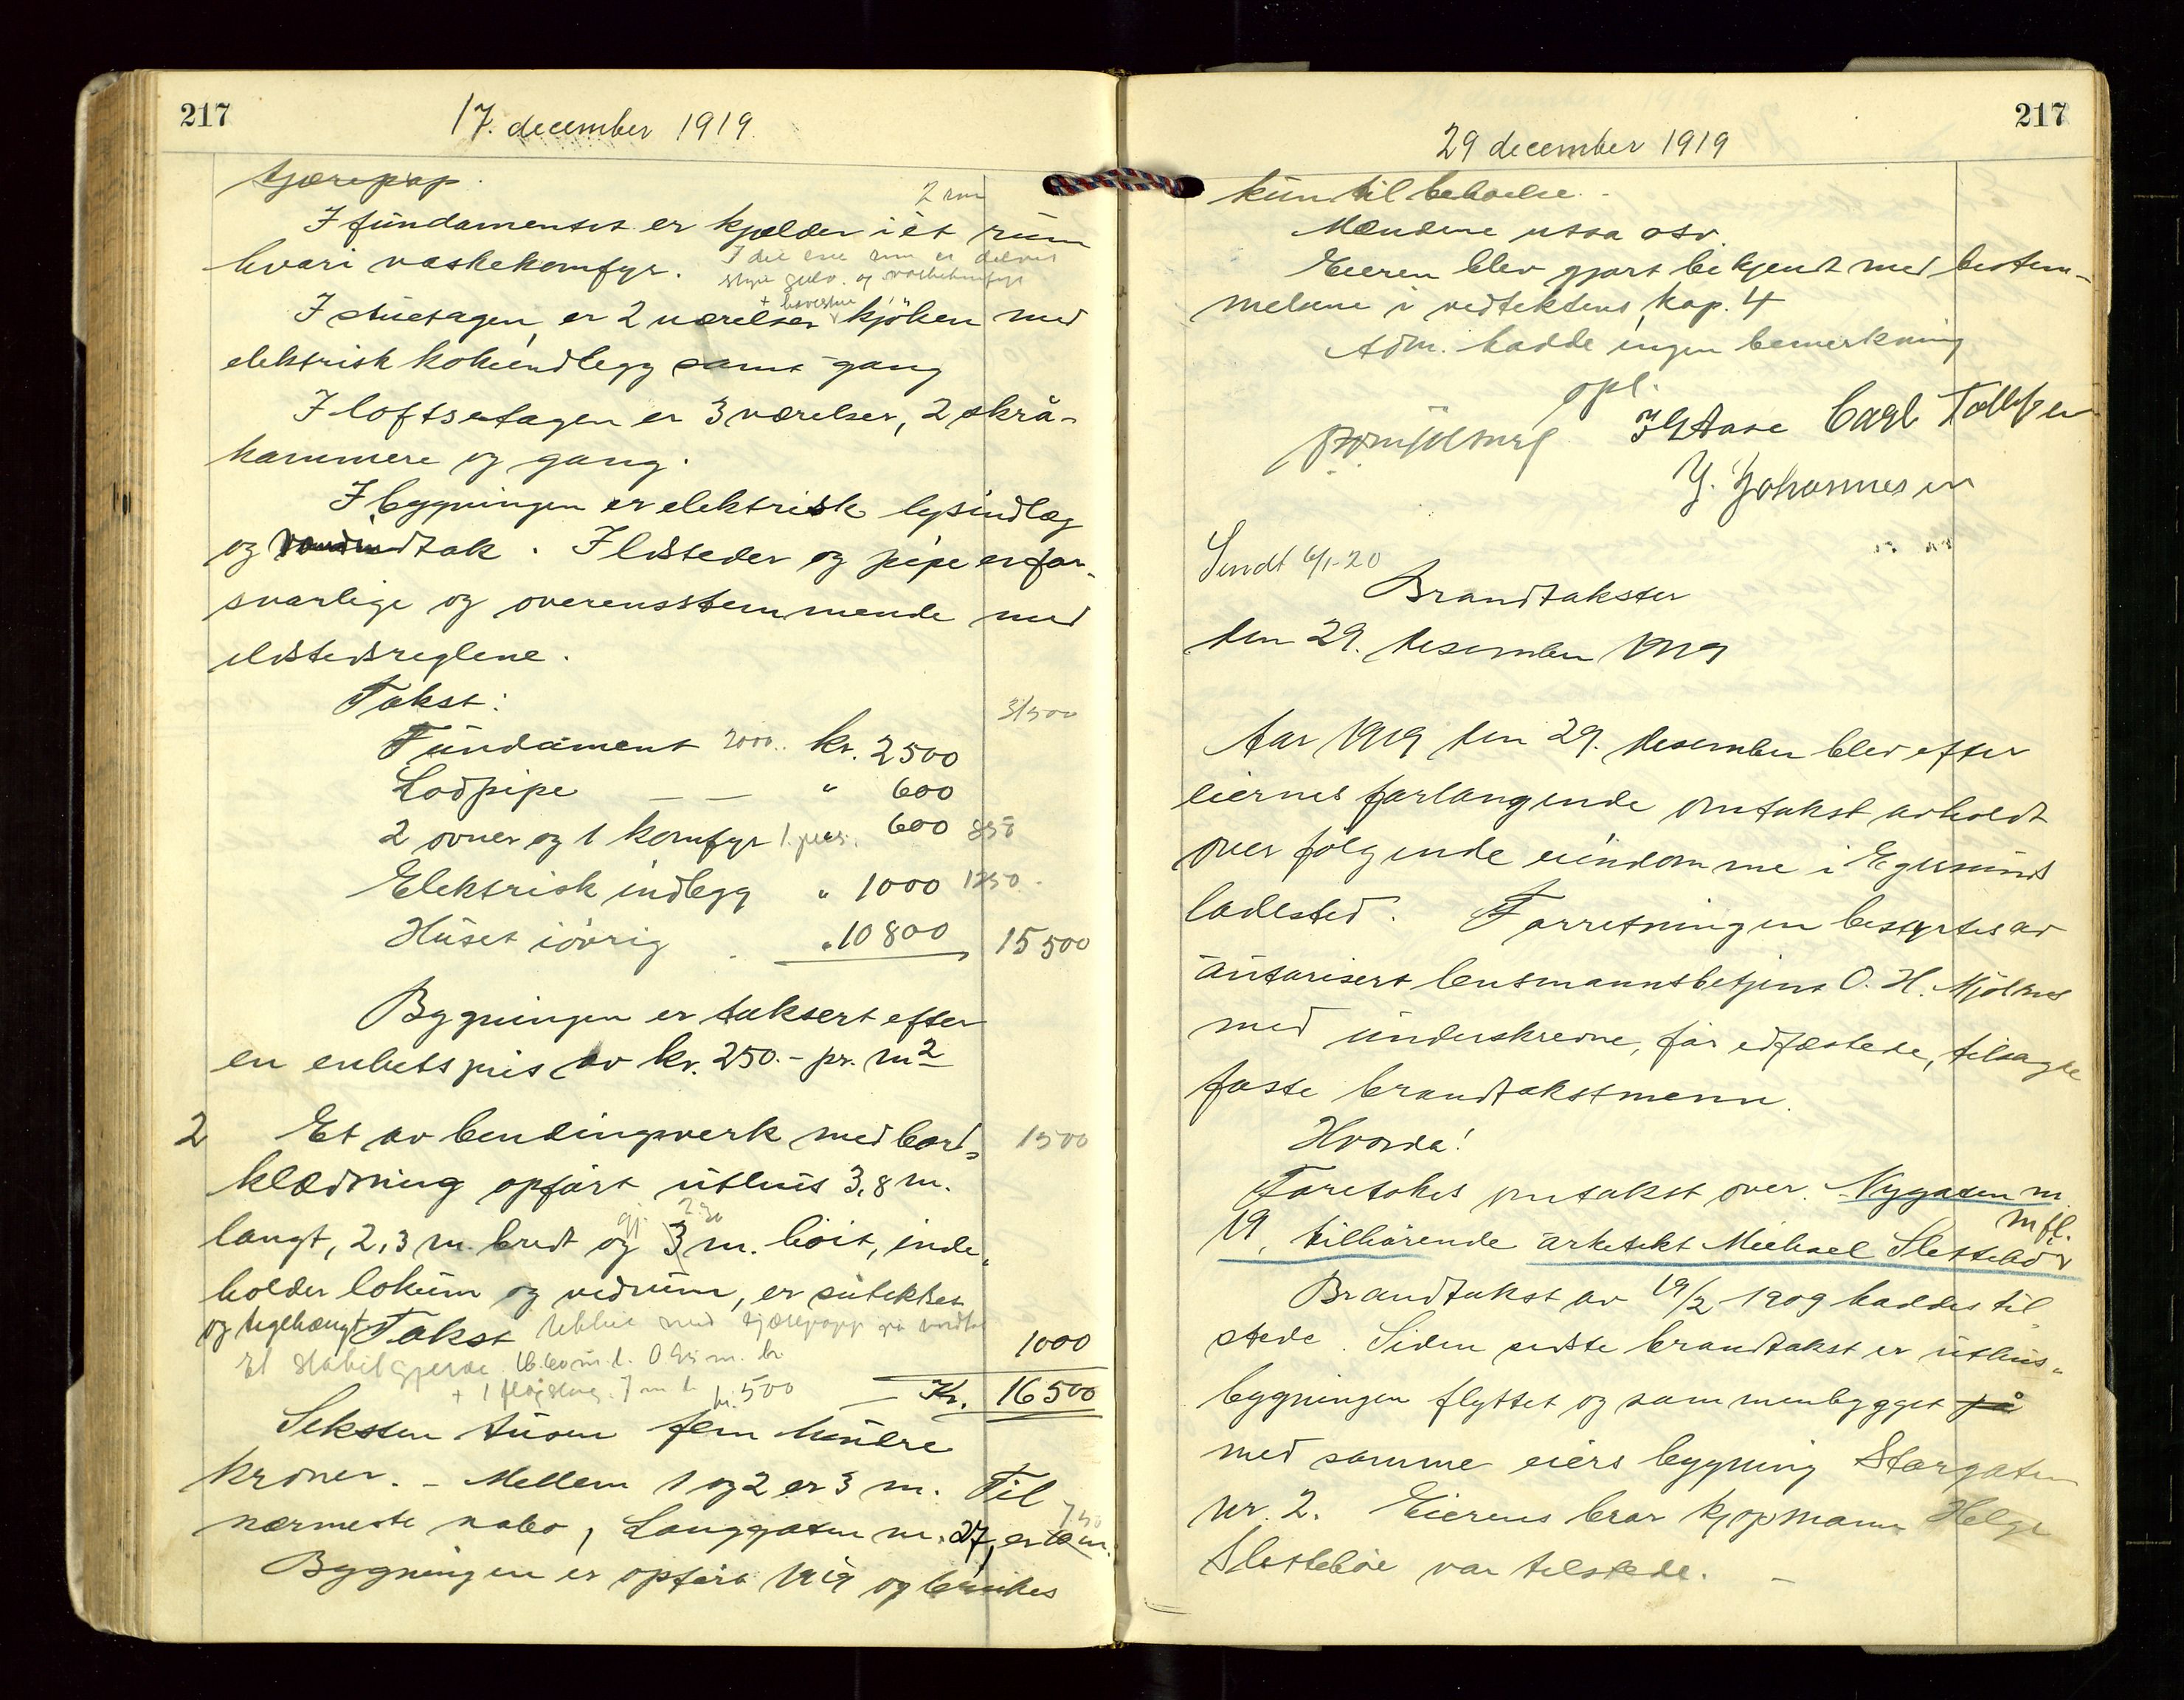 217
17. december 1919.
tjærepap.
2 rum
I fundamentet er kjælder i èt rum
hvari vaskekomfyr. I det ene rum er delvis
støpt gulv. og vaskekomfyr
+ baderum
I stuetagen er 2 værelser kjöken med
elektrisk kokeindlegg samt gang
I loftsetagen er 3 værelser, 2 skrå-
kammere og gang.
I bygningen er elektrisk lysindlæg
og vandindtak. Ildsteder og pipe er for-
svarlige og overensstemmende med
ildstedsreglene.
Takst:
31500
Fundament 2000.. kr. 2500
Lodpipe — — " 600
2 ovner og 1 komfyr 600 850
Elektrisk indlegg " 1000 1250.
Huset iövrig " 10800 15500
Bygningen er taksert efter
en enhetspris av kr. 250.- pr. m2
2 Et av bendingsverk med bord- 1500
klædning opfört uthus 3,8 m.
2.30
langt, 2,3 m. bredt og gj. 3 m. höit, inde-
holder lokum og vedrum, er sutekket
og teglhængt Takst tækket med tjærepapp på 1000
Et stakitgjerde 16.60 m. l. 0.95 m. h.
+ 1 flagstang 7 m l. kr. 500 — Kr. 16500
Seksten tusen fem hundre
kroner. - Mellem 1 og 2 er 3 m. Til
7.50
nærmeste nabo, Langgaten nr. 27, er 10 m.
Bygningen er opfört 1919 og brukes
217
29 december 1919
kun til beboelse.
Mændene ussa osv.
Eieren blev gjort bekjendt med bestem-
melsene i vedtektens kap. 4
Adm. hadde ingen bemerkning
opl.
Carl Tollefsen
Y. Johannesen
Sendt 6/1-20
Brandtakster
den 29. desember 1919
Aar 1919 den 29. desember blev efter
eiernes forlangende omtakst avholdt
over følgende eiendomme i Egersund
ladested. Forretningen bestyrtes av
autorisert lensmannsbetjent O. H. Mjölsnes
med underskrevne, før edfæstede, tilsagte
faste brandtakstmenn.
Hvorda!
Foretokes omtakst over. Nygaten nr
19, tilhörende arkitekt Michael Slettebö m fl.
Brandtakst av 19/2 1909 haddes til-
stede. Siden sidste brandtakst er uthus-
bygningen flyttet og sammenbygget på
med samme eiers bygning Storgaten
nr. 2. Eierens bror kjøpmann Helge
Sletteböe var tilstede. -